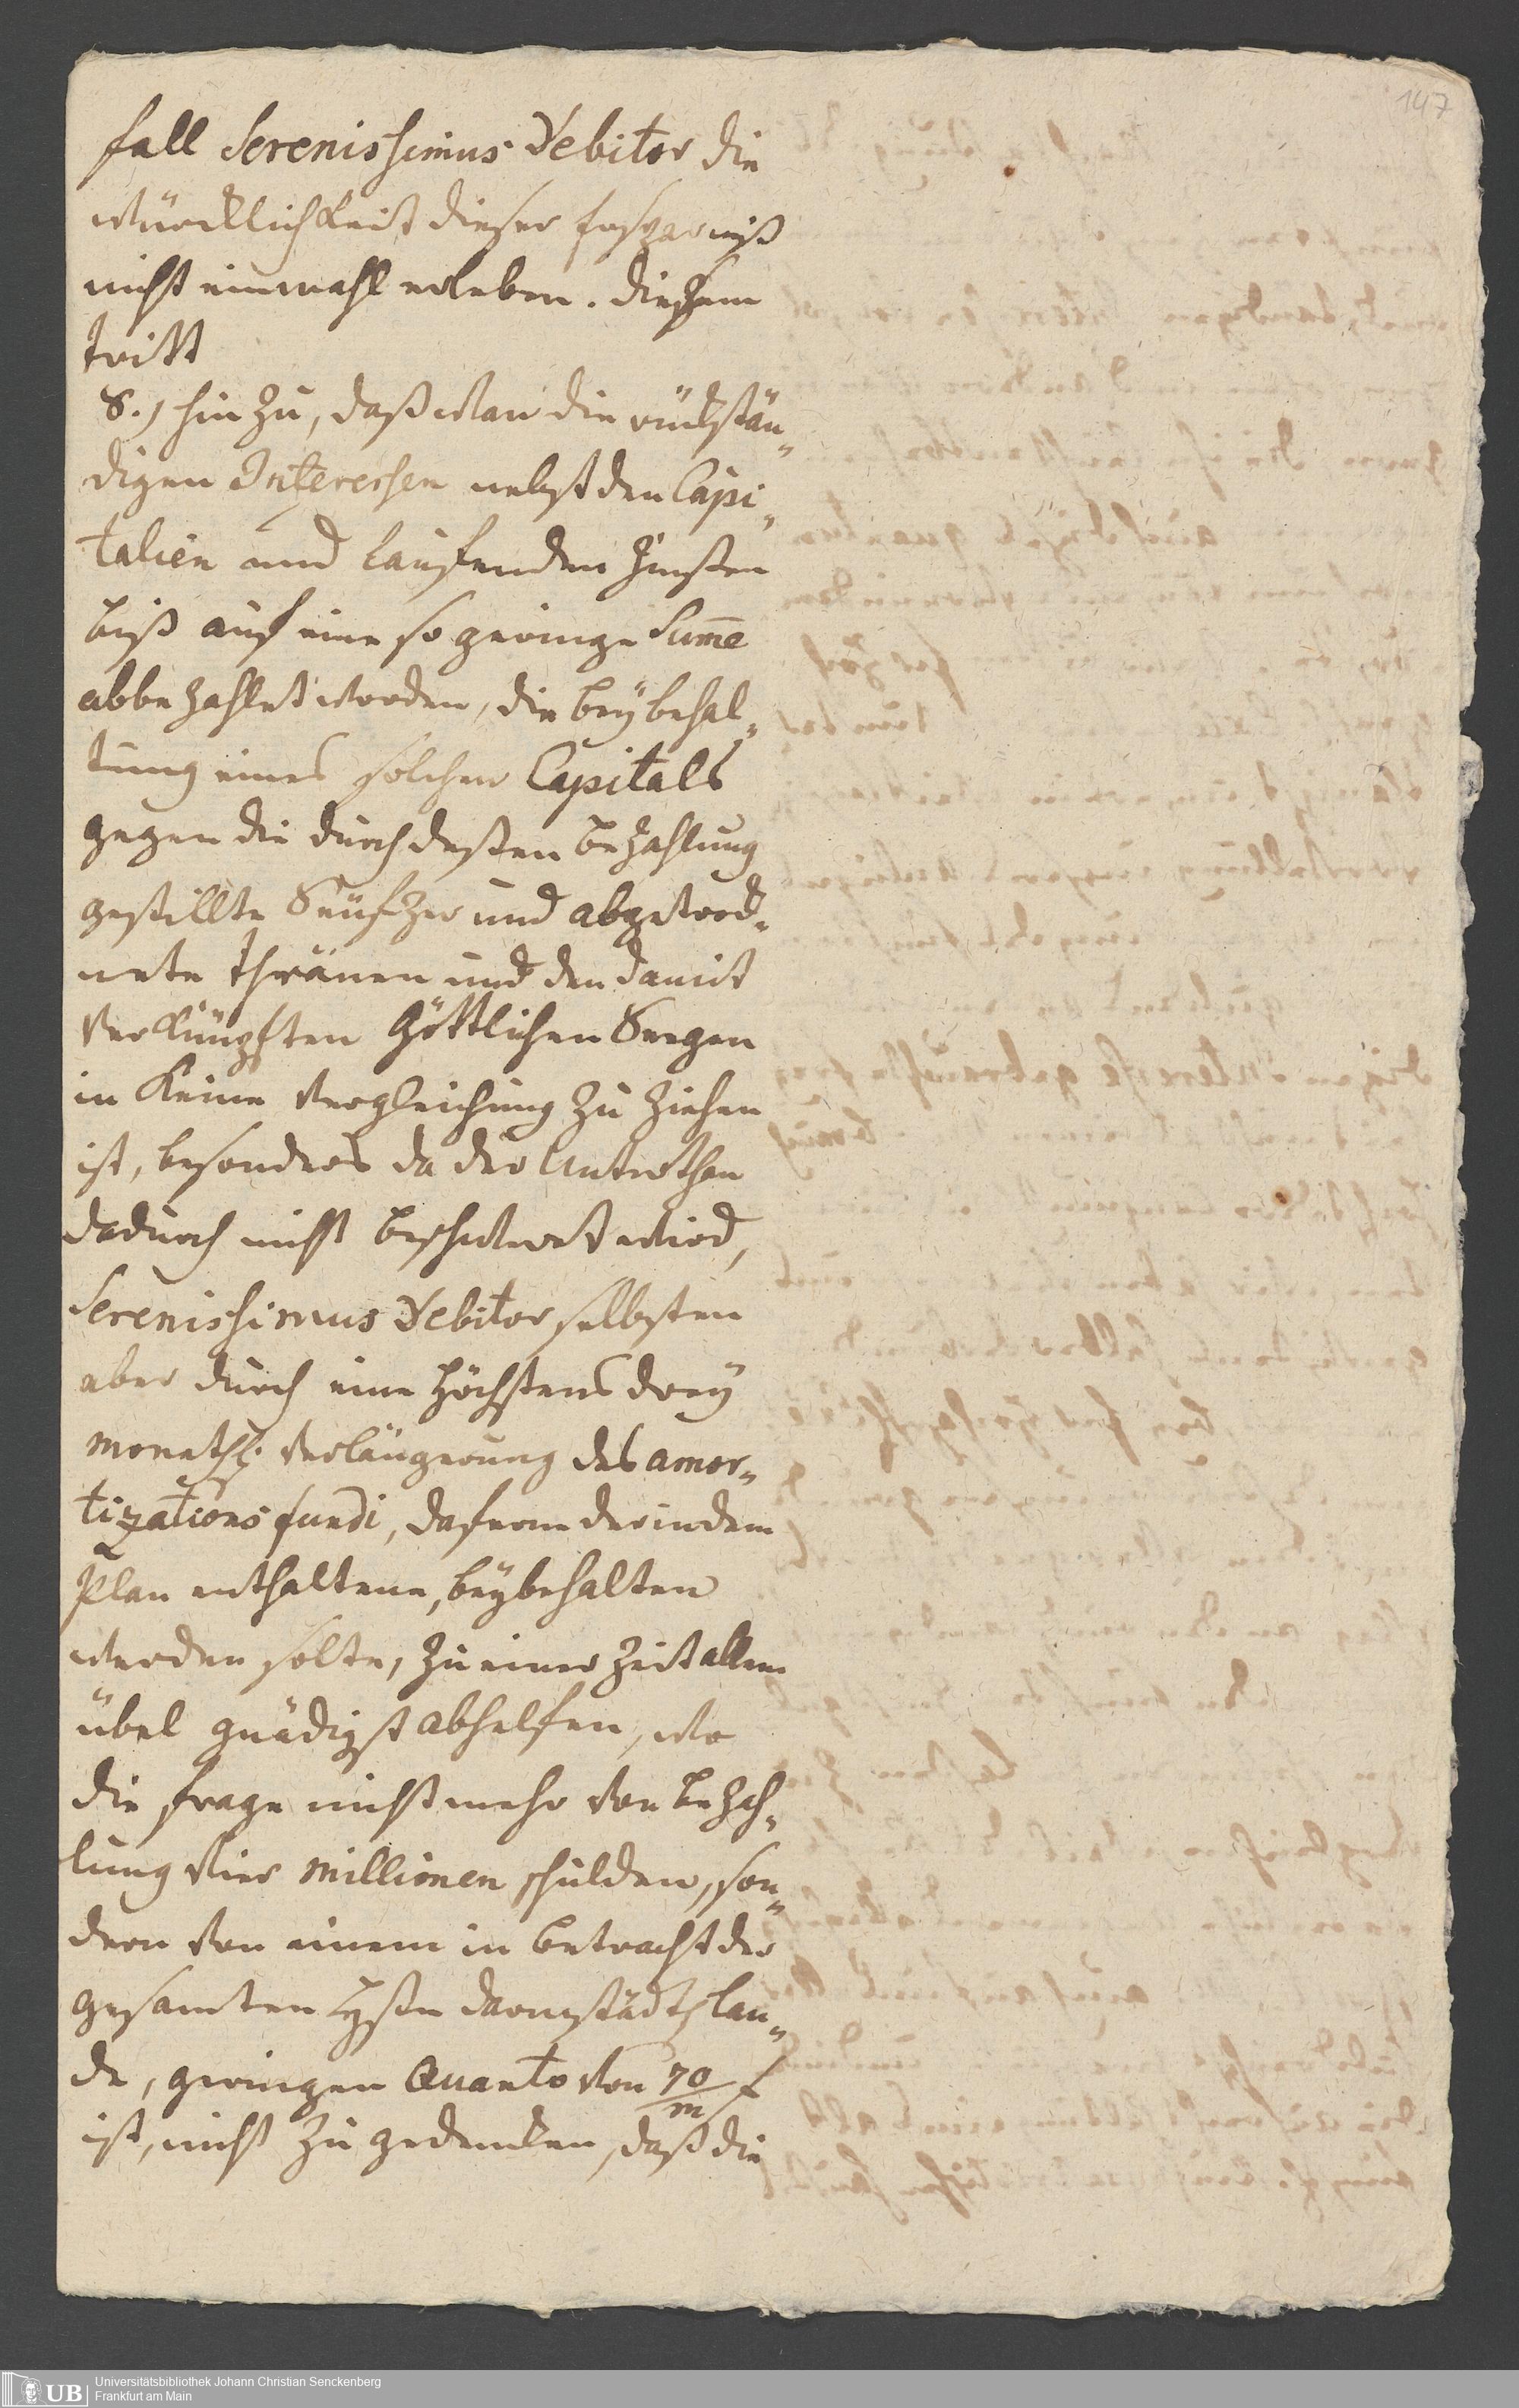 147
fall Serenissimus Debitor die
würcklichkeit dieser Ersparniß
nicht einmahl erleben. Diesem
tritt
8.) hin zu, daß wan die rückstän„
digen Interessen nebst den Capi„
talien und lauffenden Zinßen
biß auf eine so geringe Sum̅e
abbezahlet worden, die beybehal„
tung eines solchen Capitals
gegen die durch deßen bezahlung
gestillte Seufzer und abgetrock„
nete Thränen und den damit
verknüpften Göttlichen Seegen
in keine Vergleichung zu ziehen
ist, besonders da der Unterthan
dadurch nicht beschwert wird,
Serenissimus Debitor selbsten
aber durch eine höchstens drey
monathl. Verlängerung des amor„
tizations fundi, dafern der in dem
Plan enthaltene, beybehalten
werden solte, zu einer Zeit allem
übel gnädigst abhelfen, wo
die frage nicht mehr von bezah„
lung vier Millionen schulden, son„
dern von einem in betracht der
gesamten Heßen Darmstädt. Lan„
de, geringen Quanto von 70/m f
ist, nicht zu gedencken, daß die
UB
Universitätsbibliothek Johann Christian Senckenberg
Frankfurt am Main